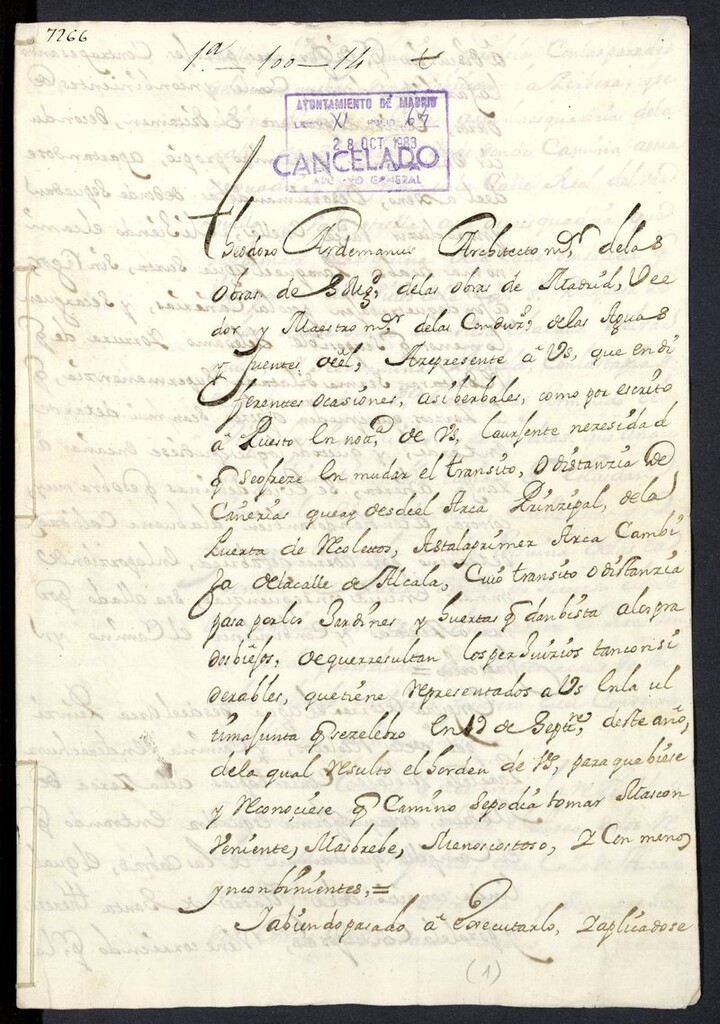 7266
1ª - 100 - 14 +
AYUNTAMIENTO DE MADRID
XI 67
28 OCT. 1983
CANCELADO
ARCHIVO GENERAL
Theodoro Ardemanus Architecto mºr de las
Obras de S Mgd, de las obras de Madrid, Vee
dor y Maestro mºr de las Conduz.s de las Aguas
y fuentes del, Arepresente a Vs, que en di
ferentes ocasiones, asi berbales, como por escrito
a Puesto En notª de Vs, la ursente nezesidad
q se ofreze En mudar el transito, o distanzia de
Cañerias que ay desde el Arca Prinzipal, de la
Puerta de Recoletos, Asta la primer Arca Cambi
ja de la calle de Alcala, Cuio transito o distanzia
pasa por los Jardines y huertas q dan bista a los pra
dos biejos, de que rresultan los perJuizios tan consi
derables, que tiene representados a Vs En la ul
tima Junta q se zelebro En 19 de Septre, deste año,
de la qual resulto el horden de Vs, para que biese
y Reconoziese q Camino se podia tomar Mas con
veniente, Mas brebe, Menos costoso, y Con menos
ynconbinientes, =
Jabiendo pasado a Executarlo, y aplicadose
(1)